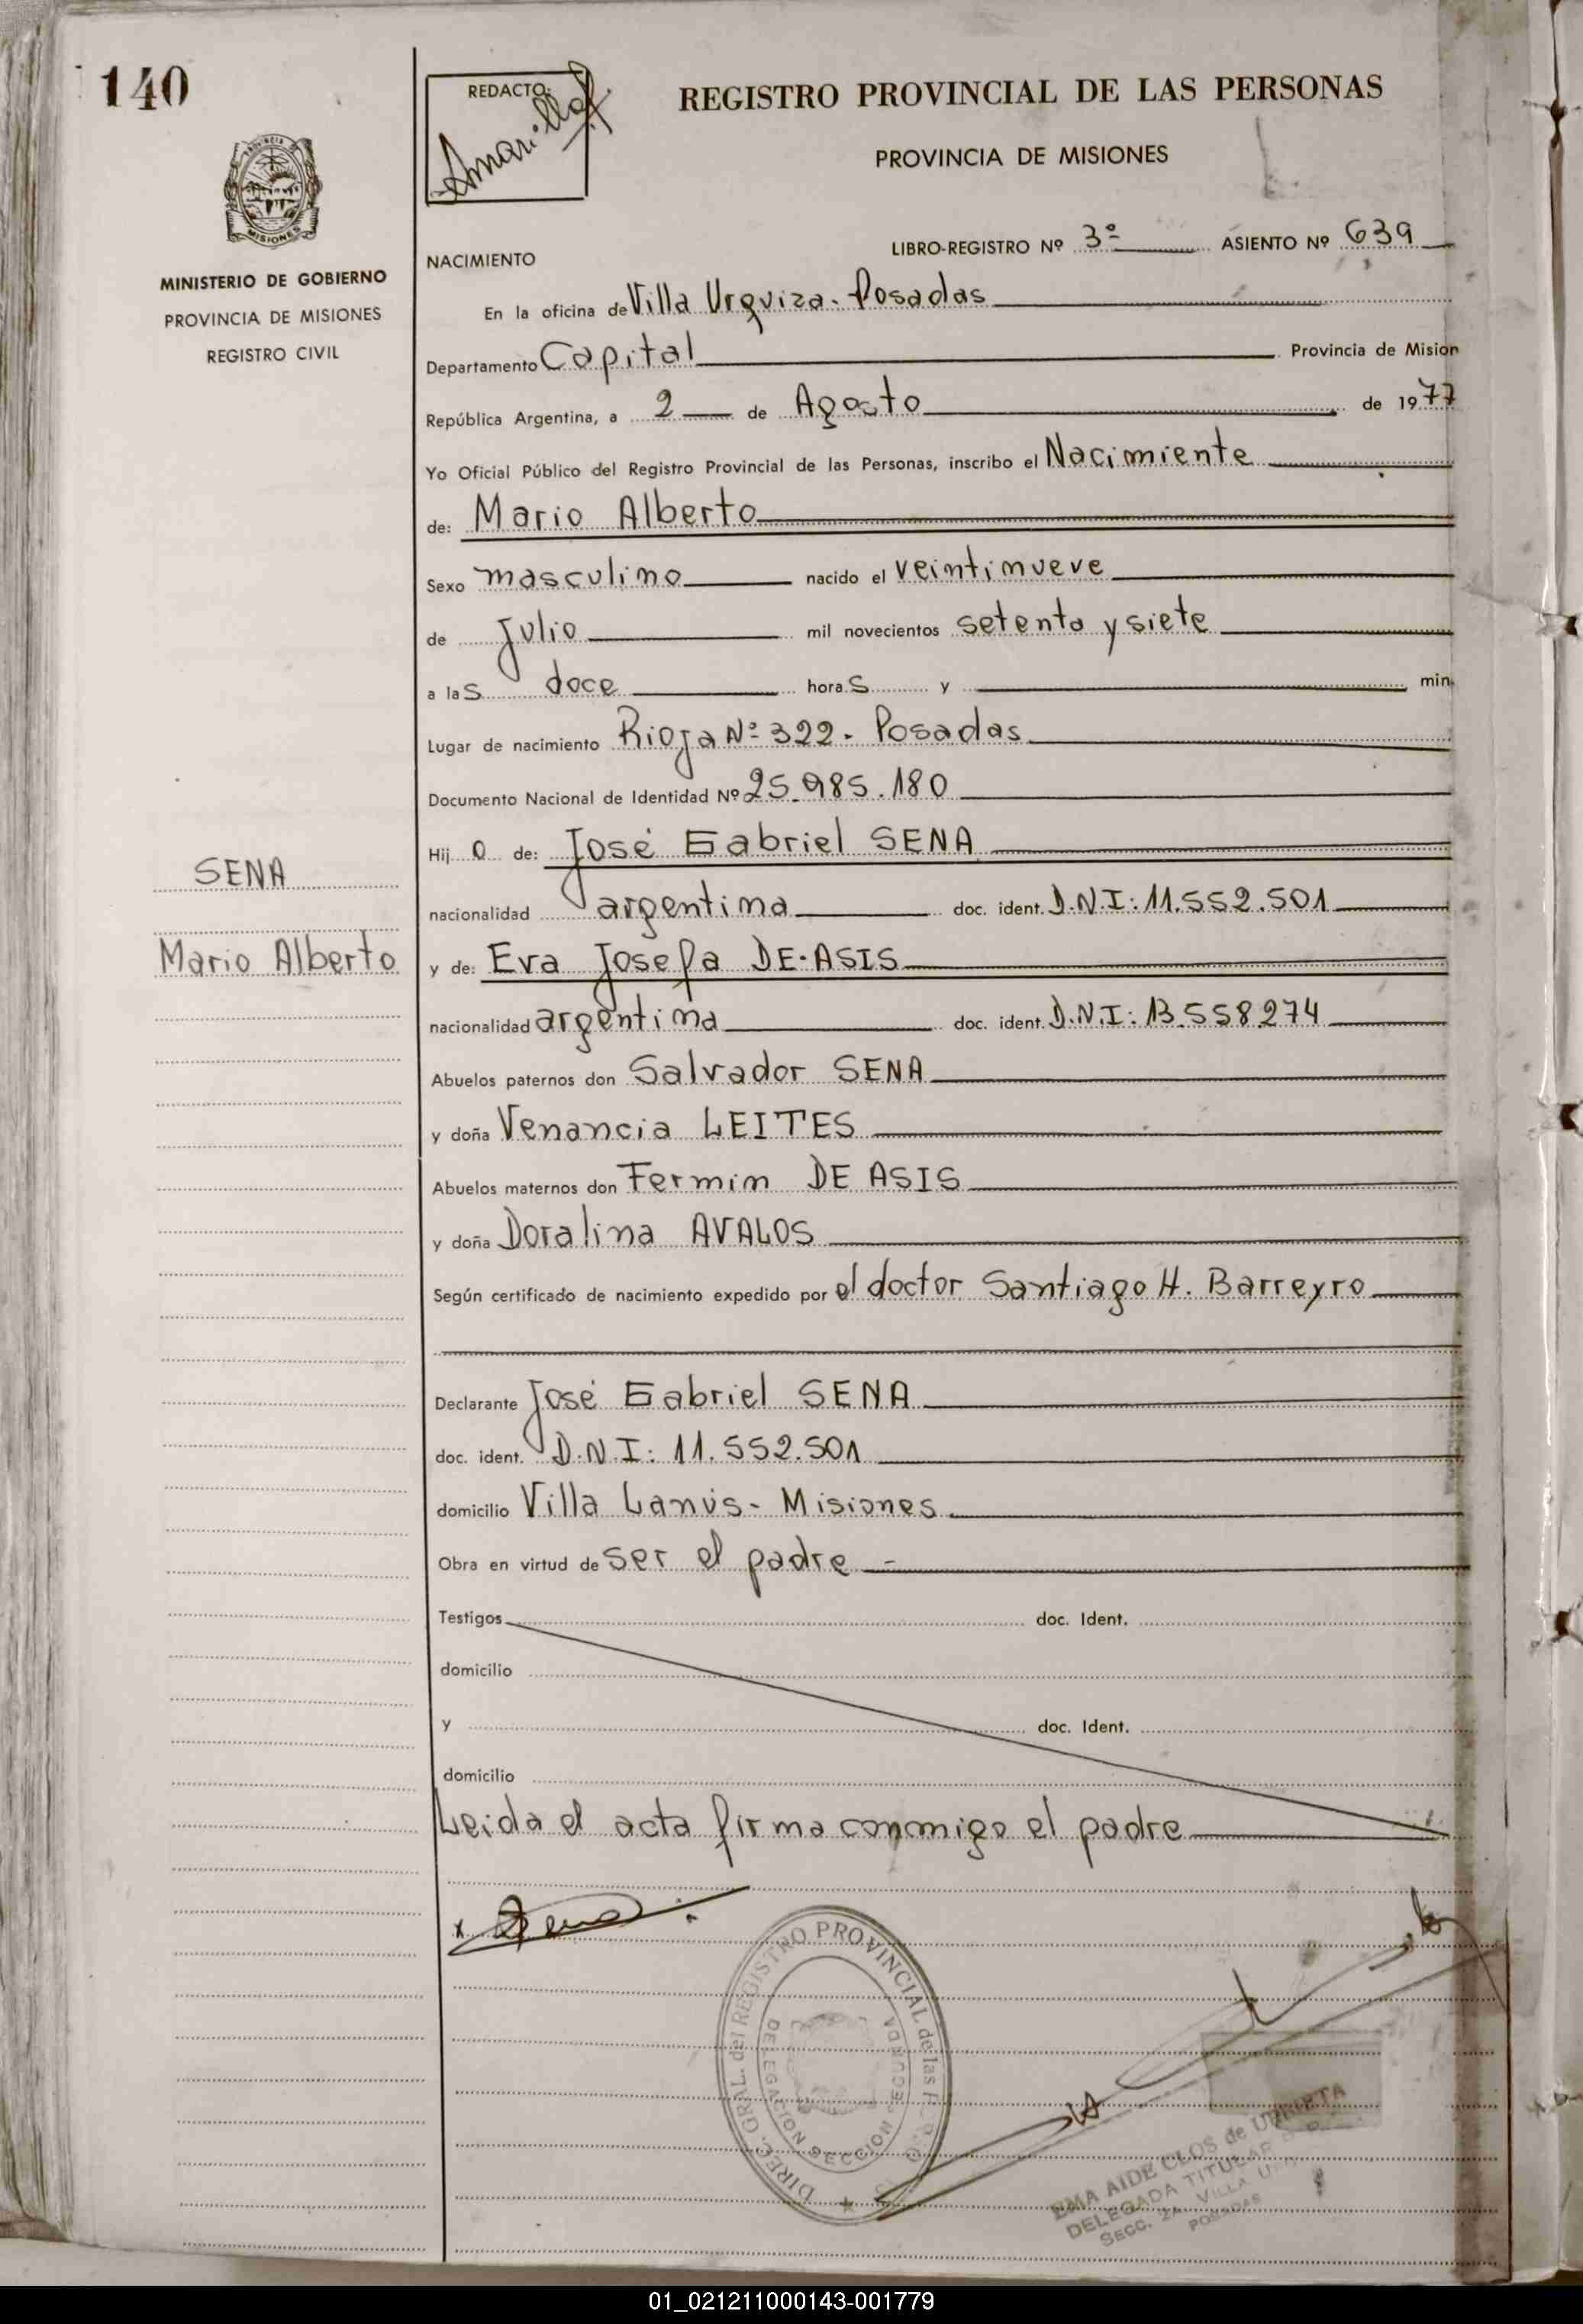 140
REDACTO:
Amarilla
REGISTRO PROVINCIAL DE LAS PERSONAS
PROVINCIA DE MISIONES
PROVINCIA DE
MISIONES
MINISTERIO DE GOBIERNO
PROVINCIA DE MISIONES
REGISTRO CIVIL
LIBRO-REGISTRO Nº 3º ASIENTO Nº 639
NACIMIENTO
En la oficina de Villa Urquiza - Posadas
Departamento Capital Provincia de Mision
República Argentina, a 2 de Agosto de 1977
Yo Oficial Público del Registro Provincial de las Personas, inscribo el Nacimiente
de: Mario Alberto
Sexo masculino nacido el veintinueve
de Julio mil novecientos setenta y siete
a las doce horas y min.
Lugar de nacimiento Rioja Nº 322 - Posadas
Documento Nacional de Identidad Nº 25.985.180
Hijo de: José Gabriel SENA
SENA
nacionalidad argentina doc. ident. D.N.I: 11.552.501
Mario Alberto
y de: Eva Josefa DE-ASIS
nacionalidad argentina doc. ident. D.N.I: 13.558.274
Abuelos paternos don Salvador SENA
y doña Venancia LEITES
Abuelos maternos don Fermin DE ASIS
y doña Doralina AVALOS
Según certificado de nacimiento expedido por el doctor Santiago H. Barreyro
Declarante José Gabriel SENA
doc. ident. D.N.I: 11.552.501
domicilio Villa Lanús - Misiones
Obra en virtud de ser el padre -
Testigos doc. Ident.
domicilio
y doc. Ident.
domicilio
Leida el acta firma conmigo el padre
x Sena
DIREC. GRAL. del REGISTRO PROVINCIAL de las
DELEGACION SECCION SEGUNDA
EMA AIDE CLOS de URRIETA
DELEGADA TITULAR
SECC. 2A. VILLA
POSADAS
01_021211000143-001779